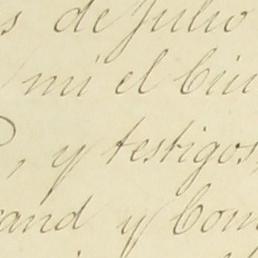 s de Julio
mi el Ciu
, y testigos,
rand y Com